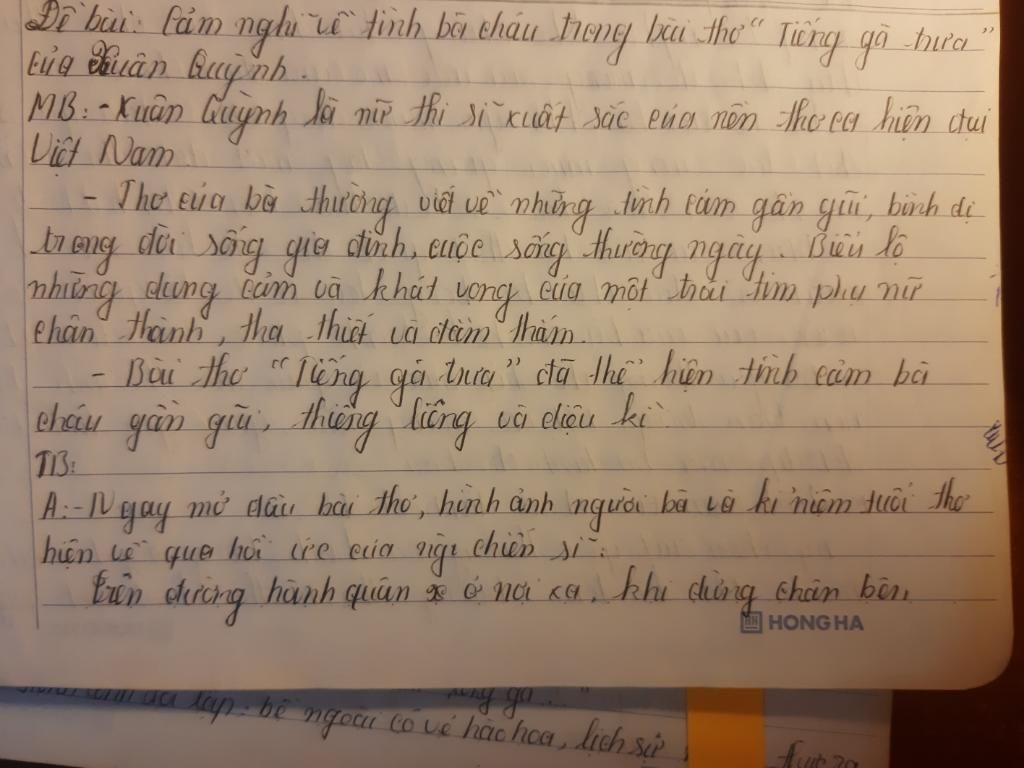 Đề bài: Cảm nghĩ về tình bà cháu trong bài thơ "Tiếng gà trưa"
của Xuân Quỳnh.
MB: - Xuân Quỳnh là nữ thi sĩ xuất sắc của nền thơ ca hiện đại
Việt Nam
- Thơ của bà thường viết về những tình cảm gần gũi, bình dị
trong đời sống gia đình, cuộc sống thường ngày. Biểu lộ
những dung cảm và khát vọng của một trái tim phụ nữ
chân thành, tha thiết và đằm thắm.
- Bài thơ "Tiếng gà trưa" đã thể hiện tình cảm bà
cháu gần gũi, thiêng liêng và diệu kì.
TB:
A: - Ngay mở đầu bài thơ, hình ảnh người bà và kỉ niệm tuổi thơ
hiện về qua hồi ức của chiến sĩ.
trên đường hành quân ở nơi xa, khi dừng chân bên,
HONG HA
bề ngoài có vẻ hào hoa, lịch sự,